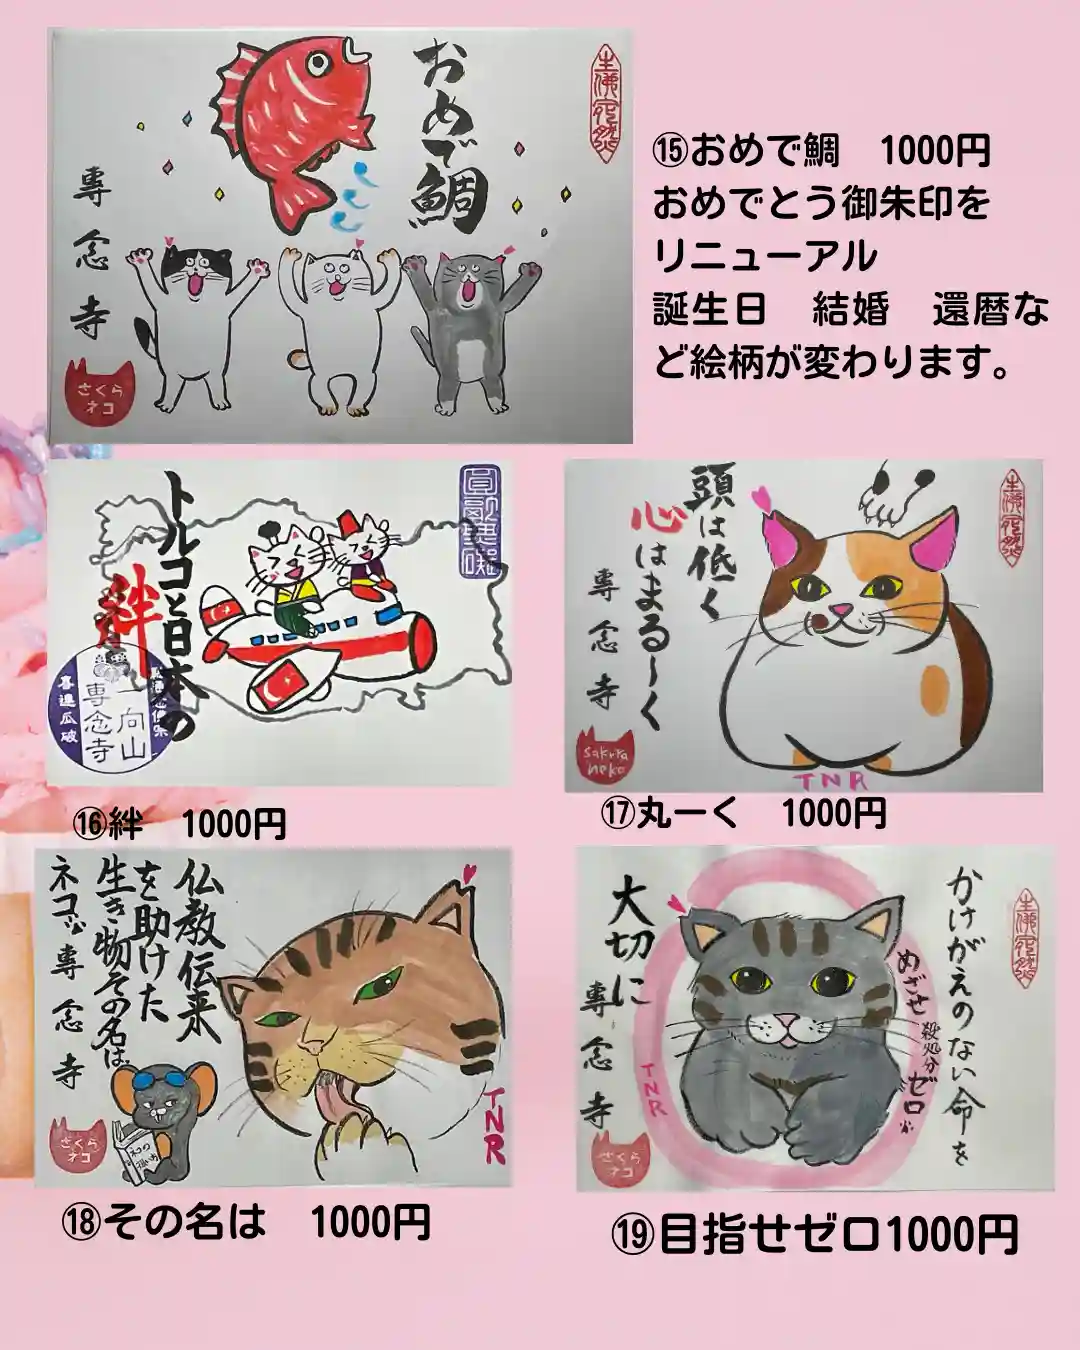 おめで鯛
専念寺
さくら
ネコ
⑮おめで鯛　1000円
おめでとう御朱印を
リニューアル
誕生日　結婚　還暦な
ど絵柄が変わります。
トルコと日本の
絆
一向山
専念寺
⑯絆　1000円
頭は低く
心はまるーく
専念寺
sakura
neko
TNR
⑰丸ーく　1000円
仏教伝来
を助けた
生き物その名は、
ネコ
専念寺
さくら
ネコ
ネコの
TNR
⑱その名は　1000円
かけがえのない命を
大切に
めざせ
殺処分
ゼロ
専念寺
TNR
さくら
ネコ
⑲目指せゼロ1000円